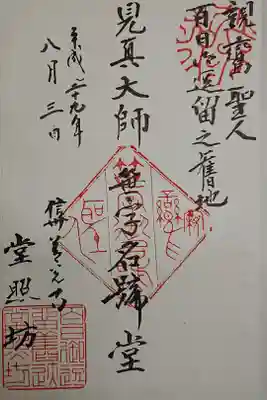 親鸞聖人
百日御逗留之舊地
見真大師 笹字名號堂
平成廿九年
八月三日
信州善光寺
堂照坊